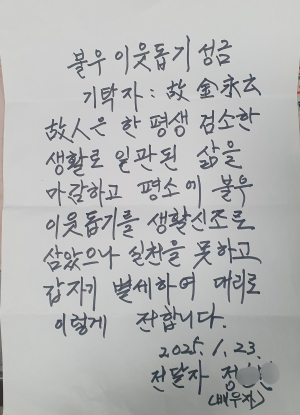 불우이웃돕기 성금
기탁자: 故 金永玄
故人은 한 평생 검소한
생활로 일관된 삶을
마감하고 평소에 불우
이웃돕기를 생활신조로
삼았으나 실천을 못하고
갑자기 별세하여 대리로
이렇게 전합니다.
2025. 1. 23.
전달자 정
(배우자)